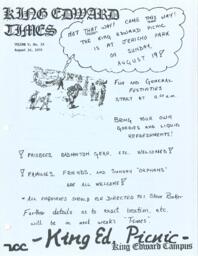 KING EDWARD
TIMES
VOLUME V, No. 29
August 10, 1979
NOT THAT WAY! COME THIS WAY!
THE KING EDWARD PICNIC
IS AT JERICHO PARK
ON SUNDAY,
AUGUST 19!
FUN AND GENERAL
FESTIVITIES
START AT 11:00 a.m.
BRING YOUR OWN
GOODIES AND LIQUID
REFRESHMENTS!
! FRISBEES BADMINTON GEAR, ETC. WELCOMED!
! FAMILIES, FRIENDS, AND SUNDRY "ORPHANS"
ARE ALL WELCOME!
* ALL ENQUIRIES SHOULD BE DIRECTED TO: Steve
Further details as to exact location, etc.
will be in next week's 'Times'.
VCC - King Ed. Picnic -
King Edward Campus